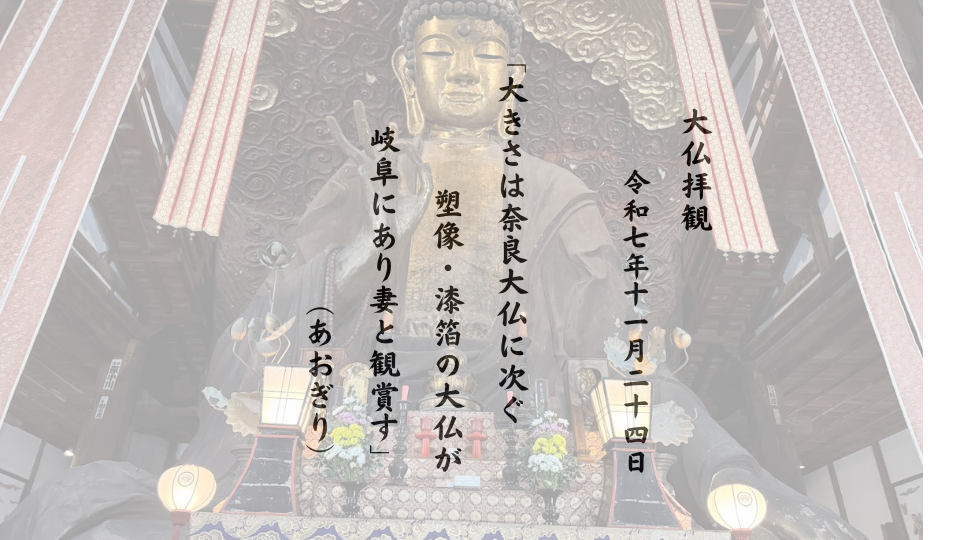 大仏拝観
令和七年十一月二十四日
「大きさは奈良大仏に次ぐ
塑像・漆箔の大仏が
岐阜にあり妻と観賞す」
（あおぎり）